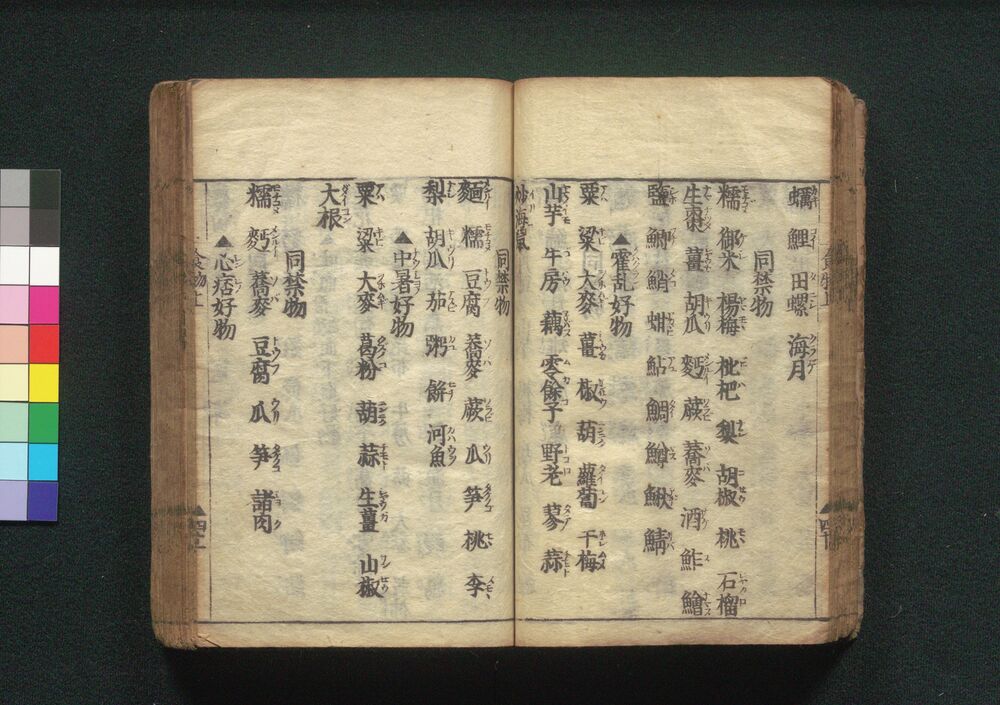 蠣 鯉 田螺 海月
同禁物
糯 御米 楊梅 枇杷 梨 胡椒 桃 石榴
生棗 薑 胡瓜 麪 蕨 蕎麥 酒 鮓 鱠
鹽 鮒 鮹 蚶 鮎 鯛 鱒 鰍 鯖
▲霍乱好物
粟 粱 大麥 薑 椒 葫 蘿蔔 干梅
山芋 牛房 藕 零餘子 野老 蓼 蒜
炒海鼠
同禁物
麵 糯 豆腐 蕎麥 蕨 瓜 笋 桃 李
梨 胡瓜 茄 粥 餅 河魚
▲中暑好物
粟 粱 大麥 葛粉 葫 蒜 生薑 山椒
大根
同禁物
糯 麪 蕎麥 豆腐 瓜 笋 諸肉
▲心痞好物